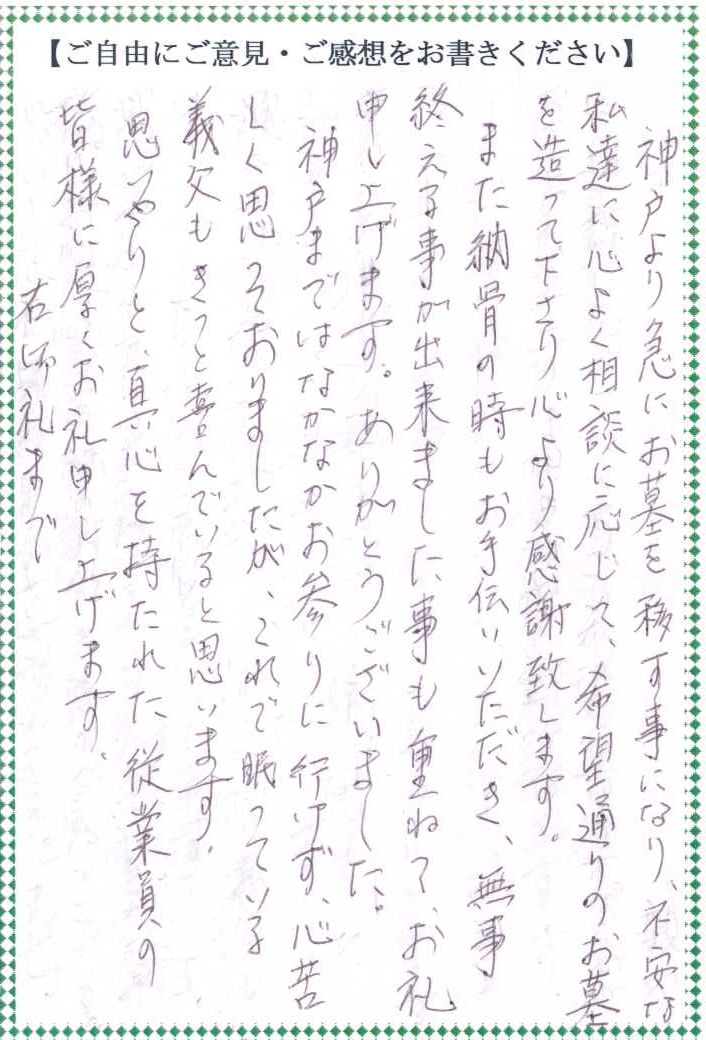 【ご自由にご意見・ご感想をお書きください】
神戸より急にお墓を移す事になり、不安な
私達に心よく相談に応じて、希望通りのお墓
を造って下さり心より感謝致します。
また納骨の時もお手伝いいただき、無事
終える事が出来ました事も重ねて、お礼
申し上げます。ありがとうございました。
神戸まではなかなかお参りに行けず、心苦
しく思っておりましたが、これで眠っている
義父もきっと喜んでいると思います。
思いやりと、真心を持たれた従業員の
皆様に厚くお礼申し上げます。
右御礼まで